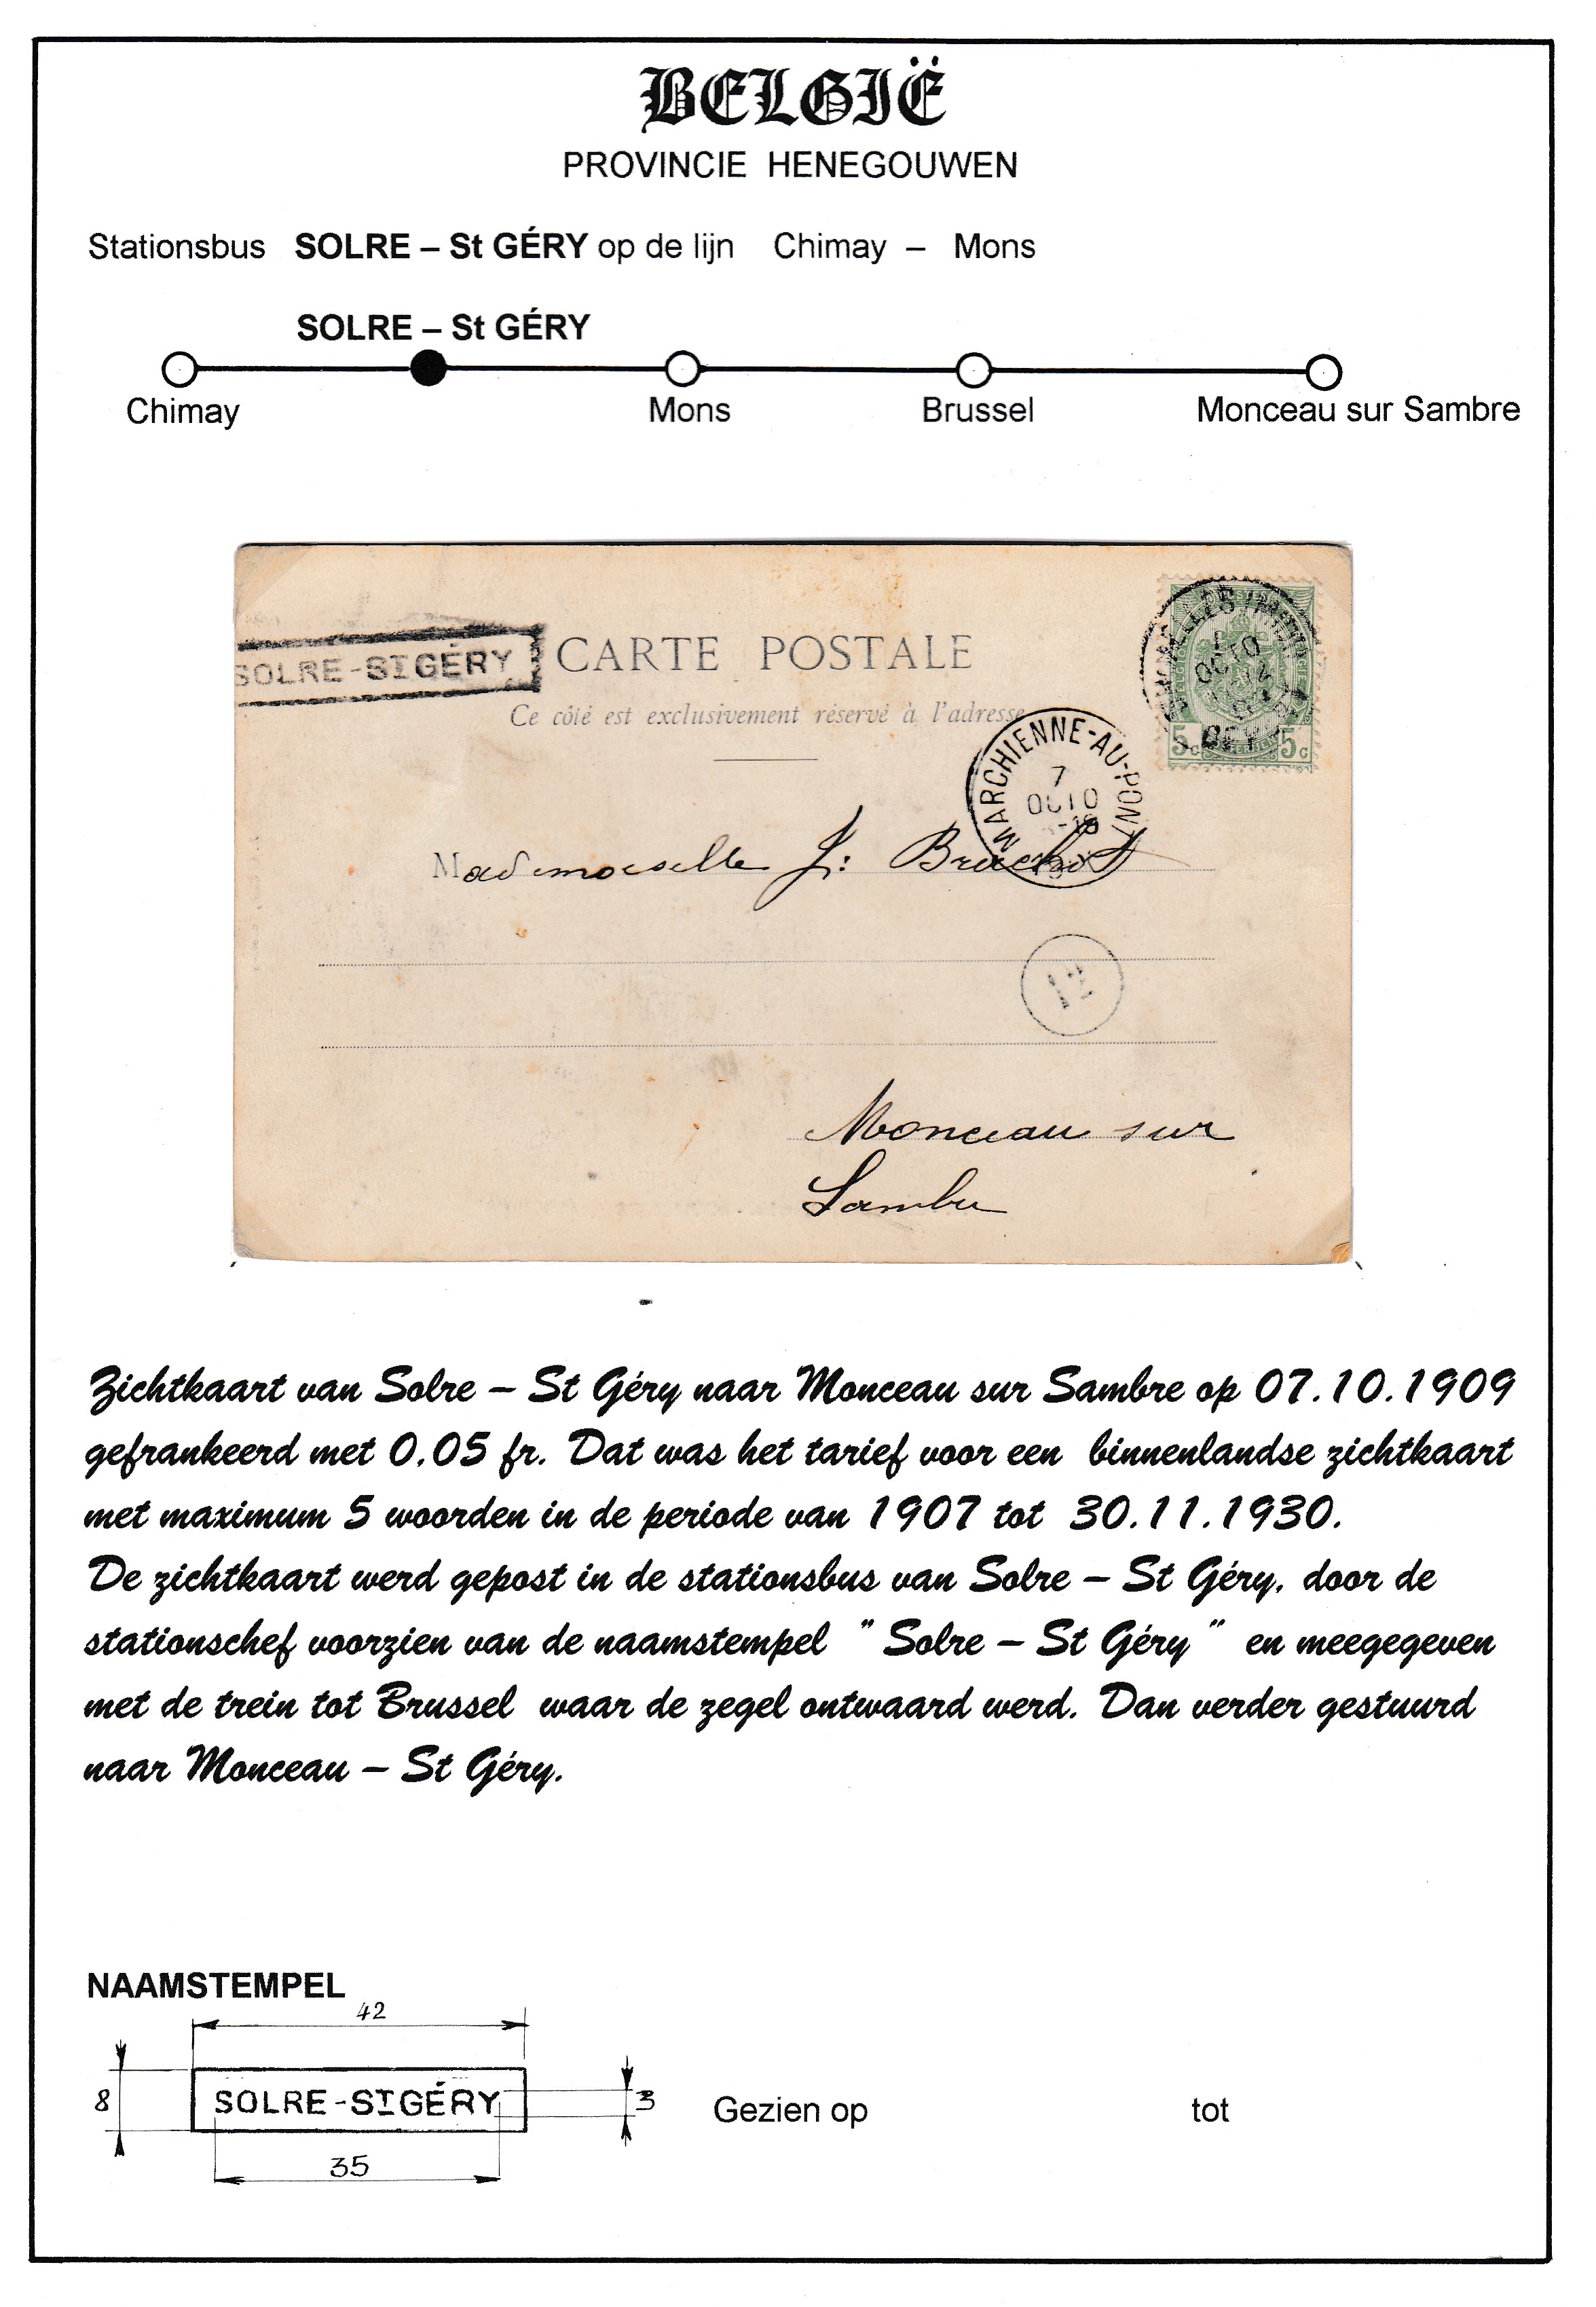 BELGIË
PROVINCIE HENEGOUWEN
Stationsbus SOLRE – St GÉRY op de lijn Chimay – Mons
SOLRE – St GÉRY
Chimay Mons Brussel Monceau sur Sambre
SOLRE-ST GÉRY
CARTE POSTALE
Ce côté est exclusivement réservé à l'adresse
5c 5c
MARCHIENNE-AU-PONT
7
OCT 0
Mademoiselle J:
12
Monceau sur
Sambre
Zichtkaart van Solre – St Géry naar Monceau sur Sambre op 07.10.1909
gefrankeerd met 0.05 fr. Dat was het tarief voor een binnenlandse zichtkaart
met maximum 5 woorden in de periode van 1907 tot 30.11.1930.
De zichtkaart werd gepost in de stationsbus van Solre – St Géry, door de
stationschef voorzien van de naamstempel " Solre – St Géry " en meegegeven
met de trein tot Brussel waar de zegel ontwaard werd. Dan verder gestuurd
naar Monceau – St Géry.
NAAMSTEMPEL
42
8 SOLRE-ST GÉRY 3
35
Gezien op tot